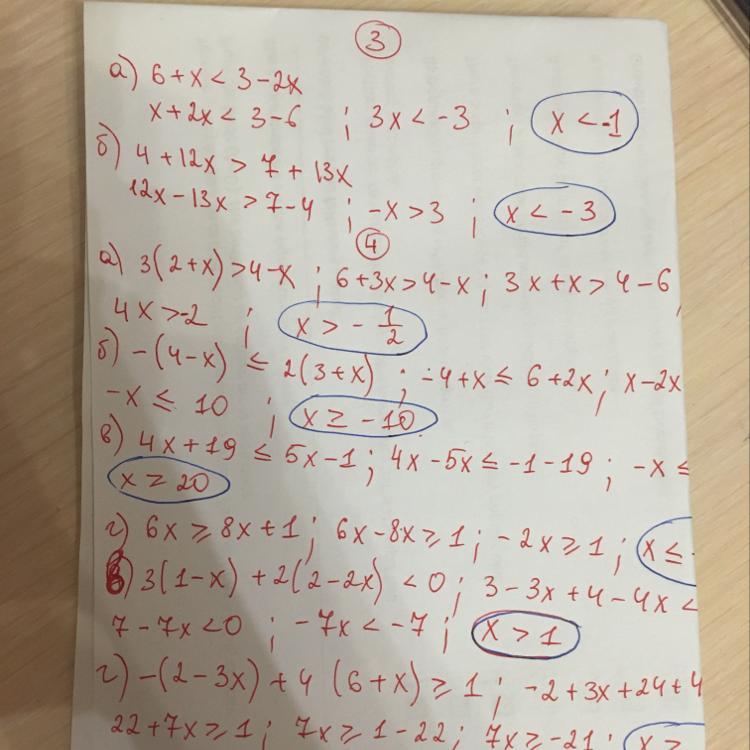 3
а) 6+x < 3-2x
x+2x < 3-6 ; 3x < -3 ; x < -1
б) 4+12x > 7+13x
12x-13x > 7-4 ; -x > 3 ; x < -3
4
а) 3(2+x) > 4-x ; 6+3x > 4-x ; 3x+x > 4-6,
4x > -2 ; x > - 1/2
б) -(4-x) ≤ 2(3+x) ; -4+x ≤ 6+2x ; x-2x
-x ≤ 10 ; x ≥ -10
в) 4x+19 ≤ 5x-1 ; 4x-5x ≤ -1-19 ; -x ≤
x ≥ 20
г) 6x ≥ 8x+1 ; 6x-8x ≥ 1 ; -2x ≥ 1 ; x ≤ -
в) 3(1-x) + 2(2-2x) < 0 ; 3-3x+4-4x <
7-7x < 0 ; -7x < -7 ; x > 1
г) -(2-3x) + 4(6+x) ≥ 1 ; -2+3x+24+4
22+7x ≥ 1 ; 7x ≥ 1-22 ; 7x ≥ -21 ; x ≥